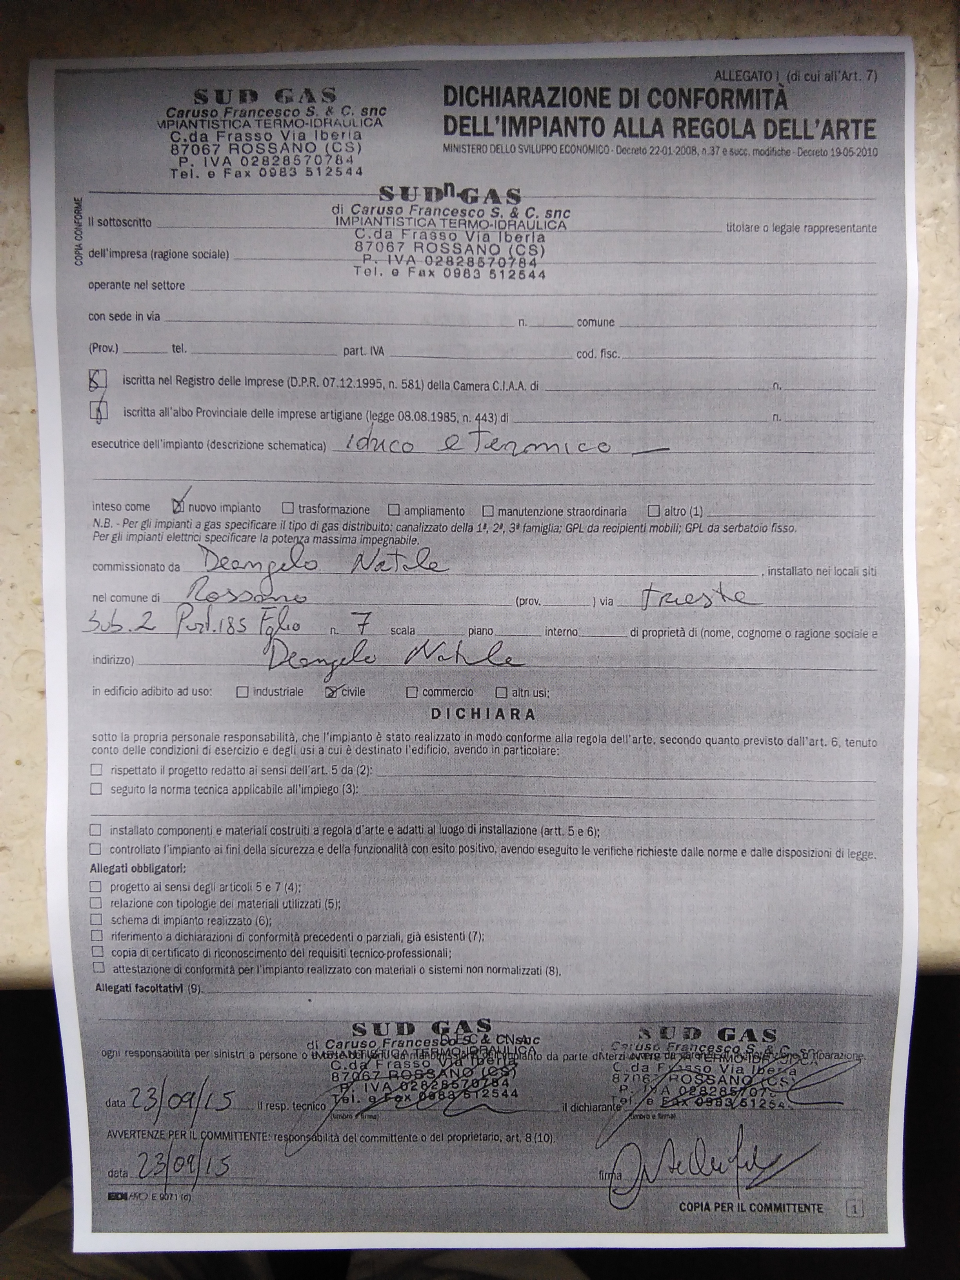 ALLEGATO I (di cui all'Art. 7)
SUD GAS
Caruso Francesco S. & C. snc
MPIANTISTICA TERMO-IDRAULICA
C.da Frasso Via Iberia
87067 ROSSANO (CS)
P. IVA 02828570784
Tel. e Fax 0983 512544
DICHIARAZIONE DI CONFORMITÀ
DELL'IMPIANTO ALLA REGOLA DELL'ARTE
MINISTERO DELLO SVILUPPO ECONOMICO - Decreto 22-01-2008, n.37 e succ. modifiche - Decreto 19-05-2010
COPIA CONFORME
SUD GAS
di Caruso Francesco S. & C. snc
IMPIANTISTICA TERMO-IDRAULICA
C.da Frasso Via Iberia
87067 ROSSANO (CS)
P. IVA 02828570784
Tel. e Fax 0983 512544
Il sottoscritto titolare o legale rappresentante
dell'impresa (ragione sociale)
operante nel settore
con sede in via n. comune
(Prov.) tel. part. IVA cod. fisc.
iscritta nel Registro delle Imprese (D.P.R. 07.12.1995, n. 581) della Camera C.I.A.A. di n.
iscritta all'albo Provinciale delle imprese artigiane (legge 08.08.1985, n. 443) di n.
esecutrice dell'impianto (descrizione schematica) idrico e Termico
inteso come nuovo impianto trasformazione ampliamento manutenzione straordinaria altro (1)
N.B. - Per gli impianti a gas specificare il tipo di gas distributo: canalizzato della 1ª, 2ª, 3ª famiglia; GPL da recipienti mobili; GPL da serbatoio fisso.
Per gli impianti elettrici specificare la potenza massima impegnabile.
commissionato da Deangelo Natale, installato nei locali siti
nel comune di Rossano (prov. ) via trieste
Sub. 2 Part. 185 Foglio n. 7 scala piano interno di proprietà di (nome, cognome o ragione sociale e
indirizzo) Deangelo Natale
in edificio adibito ad uso: industriale civile commercio altri usi;
DICHIARA
sotto la propria personale responsabilità, che l'impianto è stato realizzato in modo conforme alla regola dell'arte, secondo quanto previsto dall'art. 6, tenuto
conto delle condizioni di esercizio e degli usi a cui è destinato l'edificio, avendo in particolare:
rispettato il progetto redatto ai sensi dell'art. 5 da (2):
seguito la norma tecnica applicabile all'impiego (3):
installato componenti e materiali costruiti a regola d'arte e adatti al luogo di installazione (artt. 5 e 6);
controllato l'impianto ai fini della sicurezza e della funzionalità con esito positivo, avendo eseguito le verifiche richieste dalle norme e dalle disposizioni di legge.
Allegati obbligatori:
progetto ai sensi degli articoli 5 e 7 (4);
relazione con tipologie dei materiali utilizzati (5);
schema di impianto realizzato (6);
riferimento a dichiarazioni di conformità precedenti o parziali, già esistenti (7);
copia di certificato di riconoscimento dei requisiti tecnico-professionali;
attestazione di conformità per l'impianto realizzato con materiali o sistemi non normalizzati (8).
Allegati facoltativi (9)
SUD GAS
di Caruso Francesco S. & C. snc
IMPIANTISTICA TERMO-IDRAULICA
C.da Frasso Via Iberia
87067 ROSSANO (CS)
P. IVA 02828570784
Tel. e Fax 0983 512544
SUD GAS
di Caruso Francesco S. & C. snc
C.da Frasso Via Iberia
87067 ROSSANO (CS)
ogni responsabilità per sinistri a persone o da parte di terzi riparazione.
data 23/09/15 il resp. tecnico (timbro e firma) il dichiarante (timbro e firma)
AVVERTENZE PER IL COMMITTENTE: responsabilità del committente o del proprietario, art. 8 (10).
data 23/09/15 firma
E 9071 (d)
COPIA PER IL COMMITTENTE 1